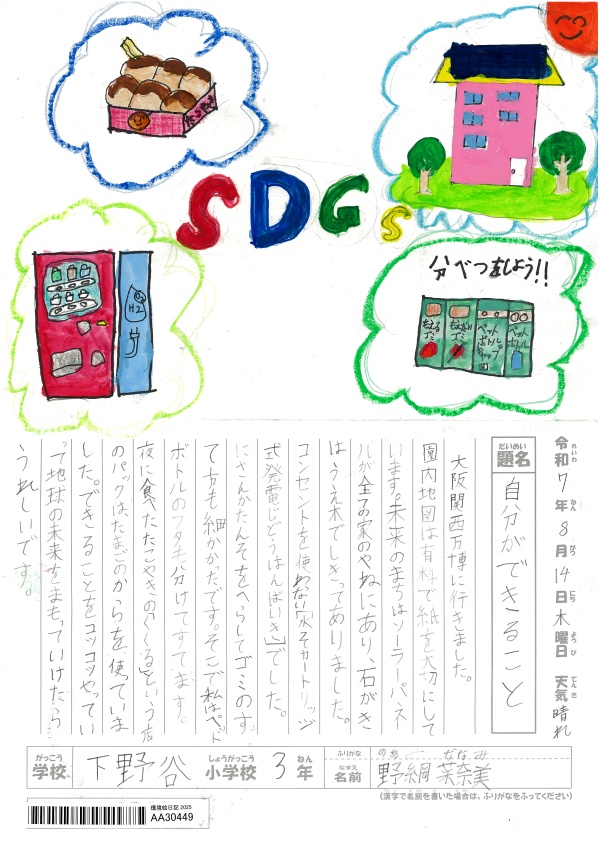 SDGs
たこやき
H2
分べつをしよう!!
もえるゴミ
もえないゴミ
ペットボトルキャップ
ペットボトル
令和7年8月14日木曜日 天気晴れ
れいわ ねん がつ にち ようび てんき
だいめい
題名 自分ができること
大阪関西万博に行きました。
園内地図は有料で紙を大切にして
います。未来のまちはソーラーパネ
ルが全てお家のやねにあり、石がき
はうえ木でしきってありました。
コンセントを使わない「水そカートリッジ
式発電じどうはんばいき」でした。
にさんかたんそをへらしてゴミのす
て方も細かかったです。そこで私はペット
ボトルのフタも分けてすてます。
夜に食べたたこやきの「くくる」という店
のパックは、たまごのからを使っていま
した。できることをコツコツやってい
って地球の未来をまもっていけたら
うれしいです。
がっこう しょうがっこう ねん ふりがな ななみ
学校 下野谷 小学校 3年 なまえ 名前 野網 菜奈美
(漢字で名前を書いた場合は、ふりがなをふってください)
環境絵日記 2025
AA30449